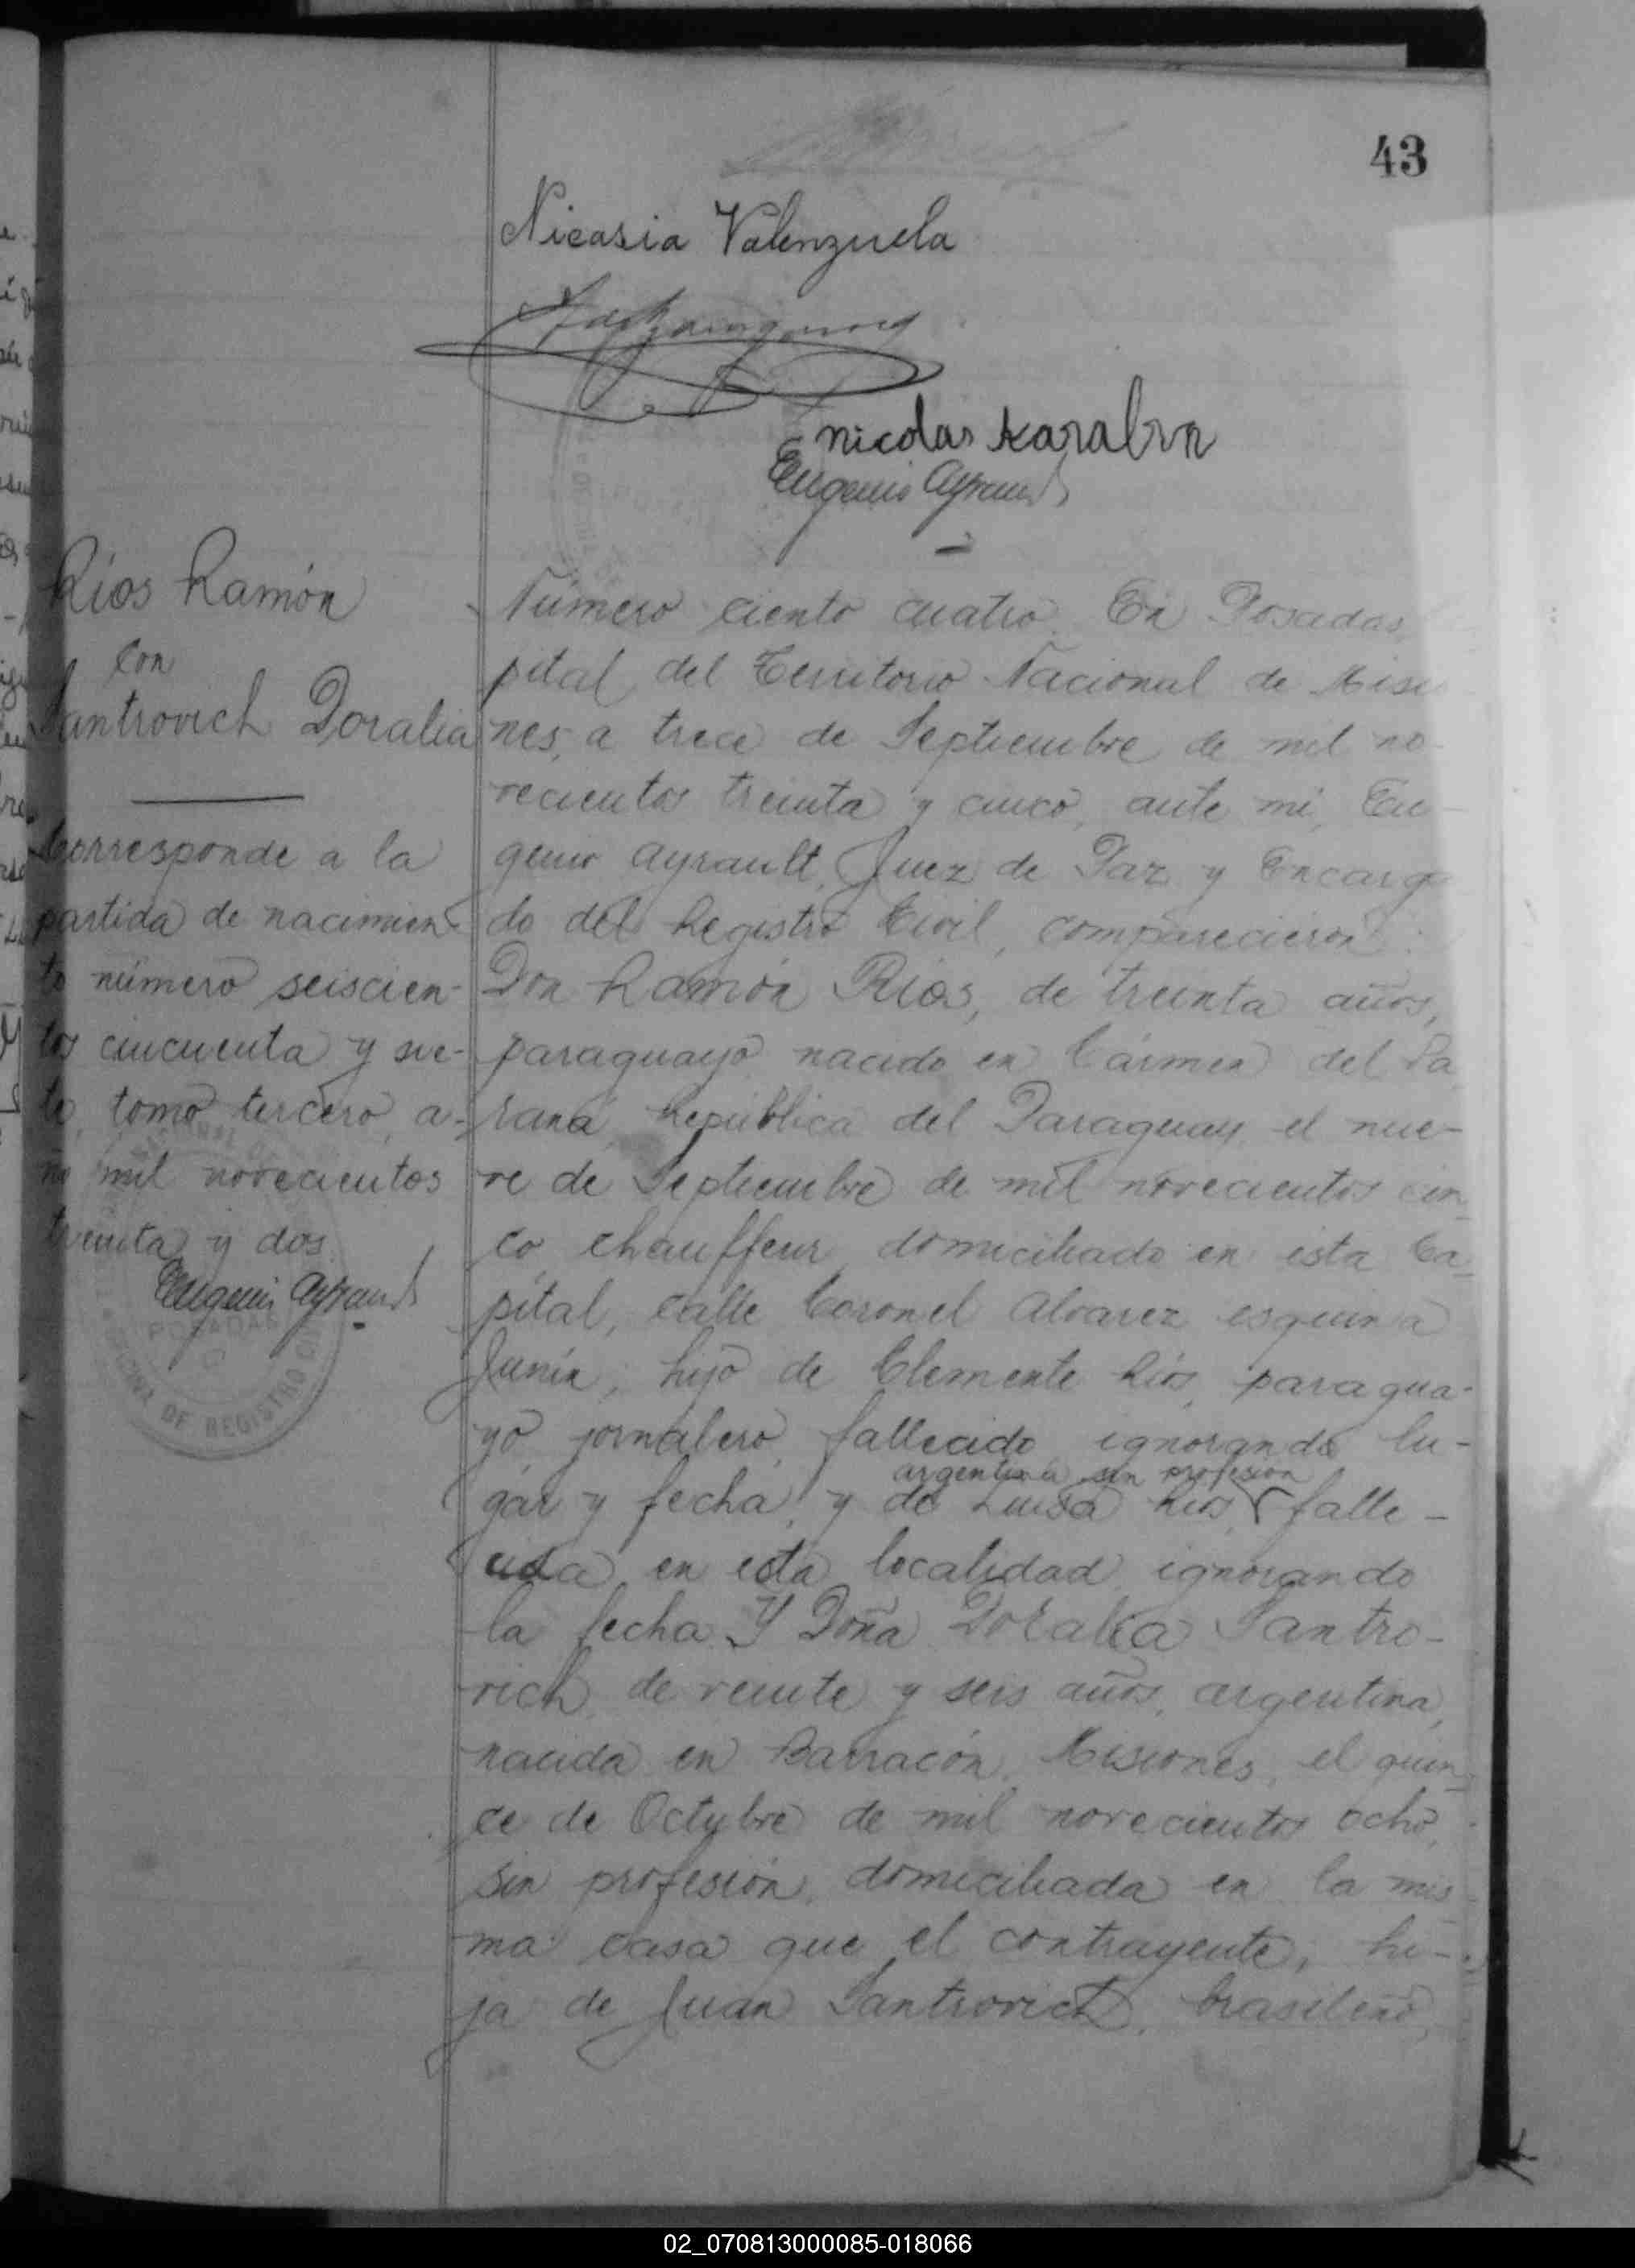 43
Nicasia Valenzuela
nicolas Karabin
Eugenio Ayrault
Ríos Ramón
con
Santrovich Doralia
Corresponde a la
partida de nacimien
to número seiscien-
tos cincuenta y sie-
te, tomo tercero, a-
ño mil novecientos
treinta y dos
Eugenio Ayrault
POSADAS
OFICINA DE REGISTRO CIVIL
Número ciento cuatro. En Posadas,
pital del Territorio Nacional de Misio
nes, a trece de Septiembre de mil no-
vecientos treinta y cinco, ante mí, Eu-
genio Ayrault, Juez de Paz y Encarga
do del Registro Civil, comparecieron:
Don Ramón Ríos, de treinta años,
paraguayo nacido en Cármen del Pa
raná República del Paraguay el nue-
ve de Septiembre de mil novecientos cin
co, chauffeur, domiciliado en esta Ca-
pital, calle Coronel Alvarez esquina
Junín, hijo de Clemente Ríos, paragua-
yo, jornalero, fallecido ignorando lu-
argentina sin profesión
gar y fecha, y de Luisa Ríos, falle-
cida en esta localidad ignorando
la fecha Y Doña Doralia Santro-
vich, de veinte y seis años, argentina,
nacida en Barracón, Misiones, el quin-
ce de Octubre de mil novecientos ocho,
sin profesión, domiciliada en la mis
ma casa que el contrayente, hi-
ja de Juan Santrovich, brasileño,
02_070813000085-018066